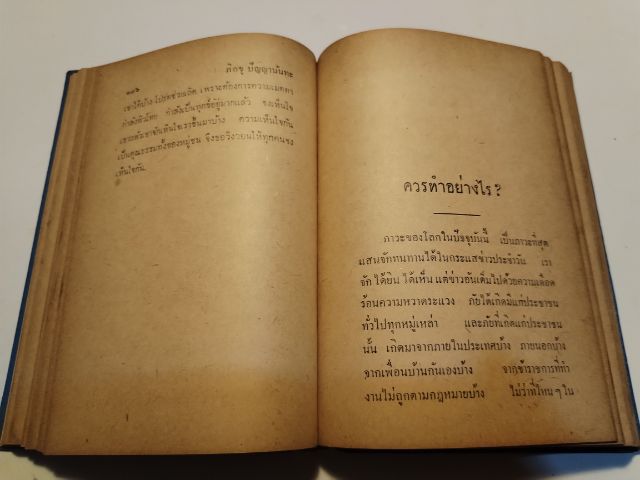 ๑๑๖
ภิกขุ ปัญญานันทะ
เขาได้บ้าง โปรดช่วยเถิด เพราะต้องการความเมตตา
กำลังหิวโหย กำลังเป็นทุกข์อยู่มากแล้ว จงเห็นใจ
เขาจะเห็นใจเราขึ้นมาบ้าง ความเห็นใจกัน
เป็นคุณธรรมทั้งของหมู่ชน จึงขอวิงวอนให้ทุกคนจง
เห็นใจกัน.
ควรทำอย่างไร?
ภาวะของโลกในปัจจุบันนี้ เป็นภาวะที่สุด
แสนจักทนทานได้ในกระแสข่าวประจำวัน เรา
จักได้ยิน ได้เห็น แต่ข่าวอันเต็มไปด้วยความเดือด
ร้อนความหวาดระแวง ภัยได้เกิดมีแก่ประชาชน
ทั่วไปทุกหมู่เหล่า และภัยที่เกิดแก่ประชาชน
นั้น เกิดมาจากภายในประเทศบ้าง ภายนอกบ้าง
จากเพื่อนบ้านกันเองบ้าง จากข้าราชการที่ทำ
งานไม่ถูกตามกฎหมายบ้าง ไม่ว่าที่ไหน ๆ ใน